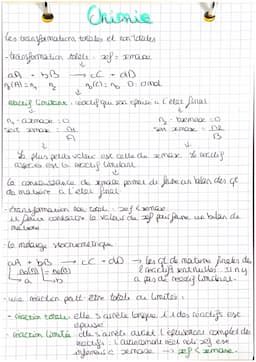 Chimie
Les transformations totales et non totales
- transformation totale : xf = xmax
aA + bB → cC + dD
n(A) = n₁ n₂ n(C) = n₀ 0 : 0 mol
réactif limitant : réactif qui s'épuise à l'état final
n₁ - axmax = 0 n₂ - bxmax = 0
soit xmax = n₁ soit xmax = n₂
La plus petite valeur est celle de xmax. Le réactif
associé est le réactif limitant
La connaissance de xmax permet de faire un bilan des qt
de matière à l'état final
- transformation non totale : xf < xmax
il faut connaître la valeur du xf pour faire un bilan de
matière
Le mélange stoechiométrique
aA + bB → cC + dD → les qt de matière finales des
2 réactifs sont nulles : il n'y
a b a pas de réactif limitant.
- une réaction peut être totale ou limitée :
- réaction totale : elle s'arrête lorsque 1 des réactifs est
épuisé
- réaction limitée : elle s'arrête avant l'épuisement complet des
réactifs : l'avancement réel noté xf est
inférieur à xmax → xf < xmax.